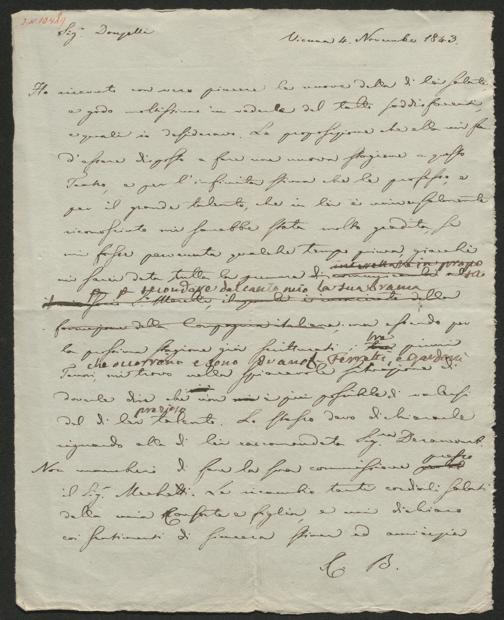 Sig. Donzelli Vienna 4. Novembre 1843.
Ho ricevuto con vero piacere le nuove della di lei salute
e godo moltissimo in vederle del tutto soddisfacenti,
e quali io desideravo. La proposizione che ella mi fa
d'essere disposto a fare una nuova stagione a questo
Teatro, e per l'infinita stima che le professo, e
per il grande talento, che in lei è universalmente
riconosciuto mi sarebbe stata molto gradita, se
mi fosse pervenuta qualche tempo prima, giacchè
mi sarei data tutta la premura di
secondare dal canto mio la sua brama
formazione della Compagnia italiana. ma essendo per
la prossima stagione già scritturati i tre primi
che occorrono e sono Ivanof, Ferretti, e Gardoni
Tenori, mi trovo nella spiacevole situazione di
doverle dire che non è più possibile di valersi
prezioso
del di lei talento. Lo stesso devo dichiararle
riguardo alla di lei raccomandata Sig.
Non mancherò di fare la sua commissione
presso
il Sig. Mechetti. Le ricambio tanti cordiali saluti
della mia Consorte e figlia, e mi dichiaro
coi sentimenti di sincera stima ed amicizia
C B.